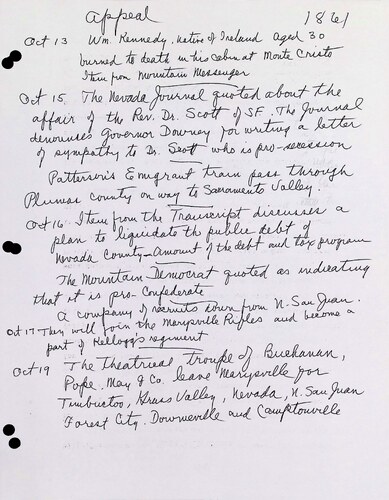 Appeal 1861
Oct 13 Wm. Kennedy, native of Ireland aged 30
burned to death in his cabin at Monte Cristo
Item from Mountain Messenger
Oct 15. The Nevada Journal quoted about the
affair of the Rev. Dr. Scott of S.F. The Journal
denounces Governor Downey for writing a letter
of sympathy to Dr. Scott who is pro-secession
Patterson's Emigrant train pass through
Plumas county on way to Sacramento Valley.
Oct 16. Item from the Transcript discusses a
plan to liquidate the public debt of
Nevada County - Amount of the debt and tax program
The Mountain Democrat quoted as indicating
that it is pro-Confederate
A company of recruits down from N. San Juan.
Oct 17 They will join the Marysville Rifles and become a
part of Kellogg's regiment
Oct 19 The Theatrical troupe of Buchanan,
Pope, May & Co. leave Marysville for
Timbuctoo, Grass Valley, Nevada, N. San Juan
Forest City, Downieville and Camptonville